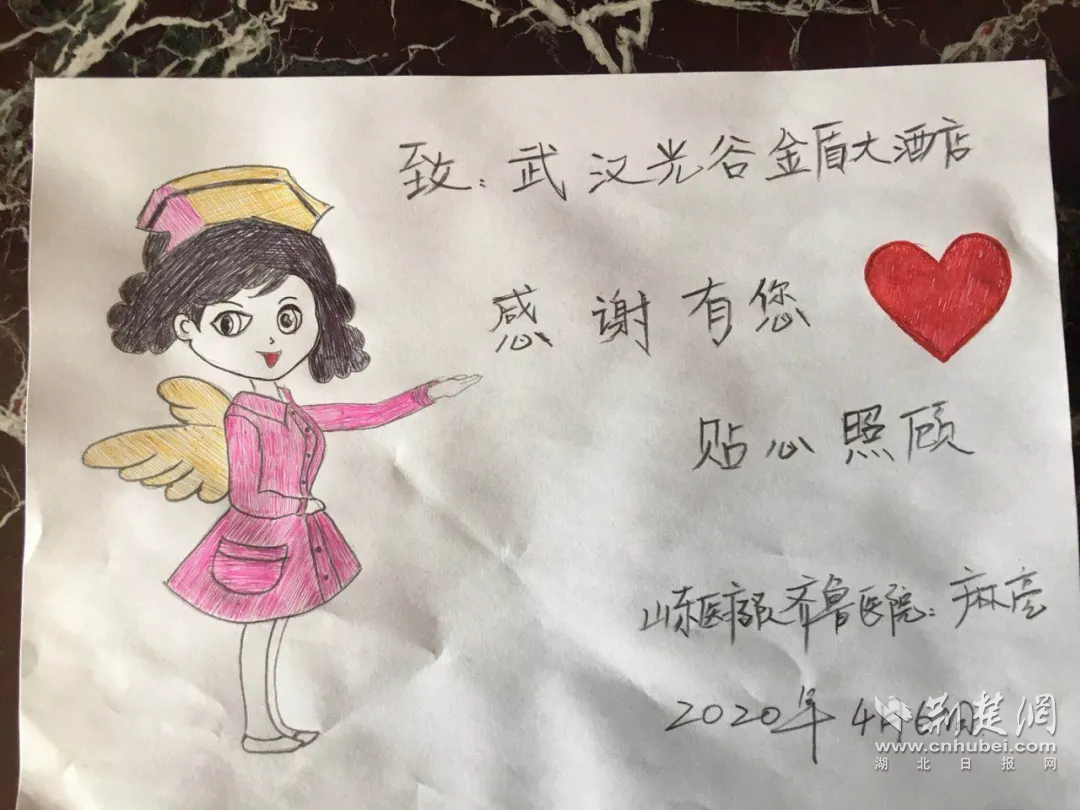 致：武汉光谷金盾大酒店
感谢有您
贴心照顾
山东医疗队齐鲁医院：麻亮
2020年4月6日
荆楚网
www.cnhubei.com
湖北日报网